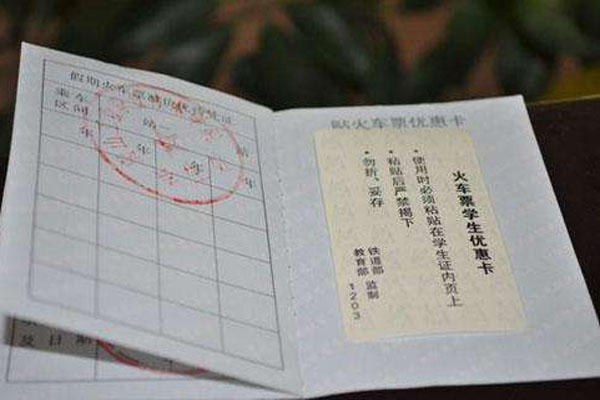 乘车
区间
站
站
年
年
年
年
及 日 期
贴火车票优惠卡
火车票学生优惠卡
• 使用时必须粘贴在学生证内页上
• 粘贴后严禁揭下
• 勿折、妥存
铁道部 监制
教育部
1203